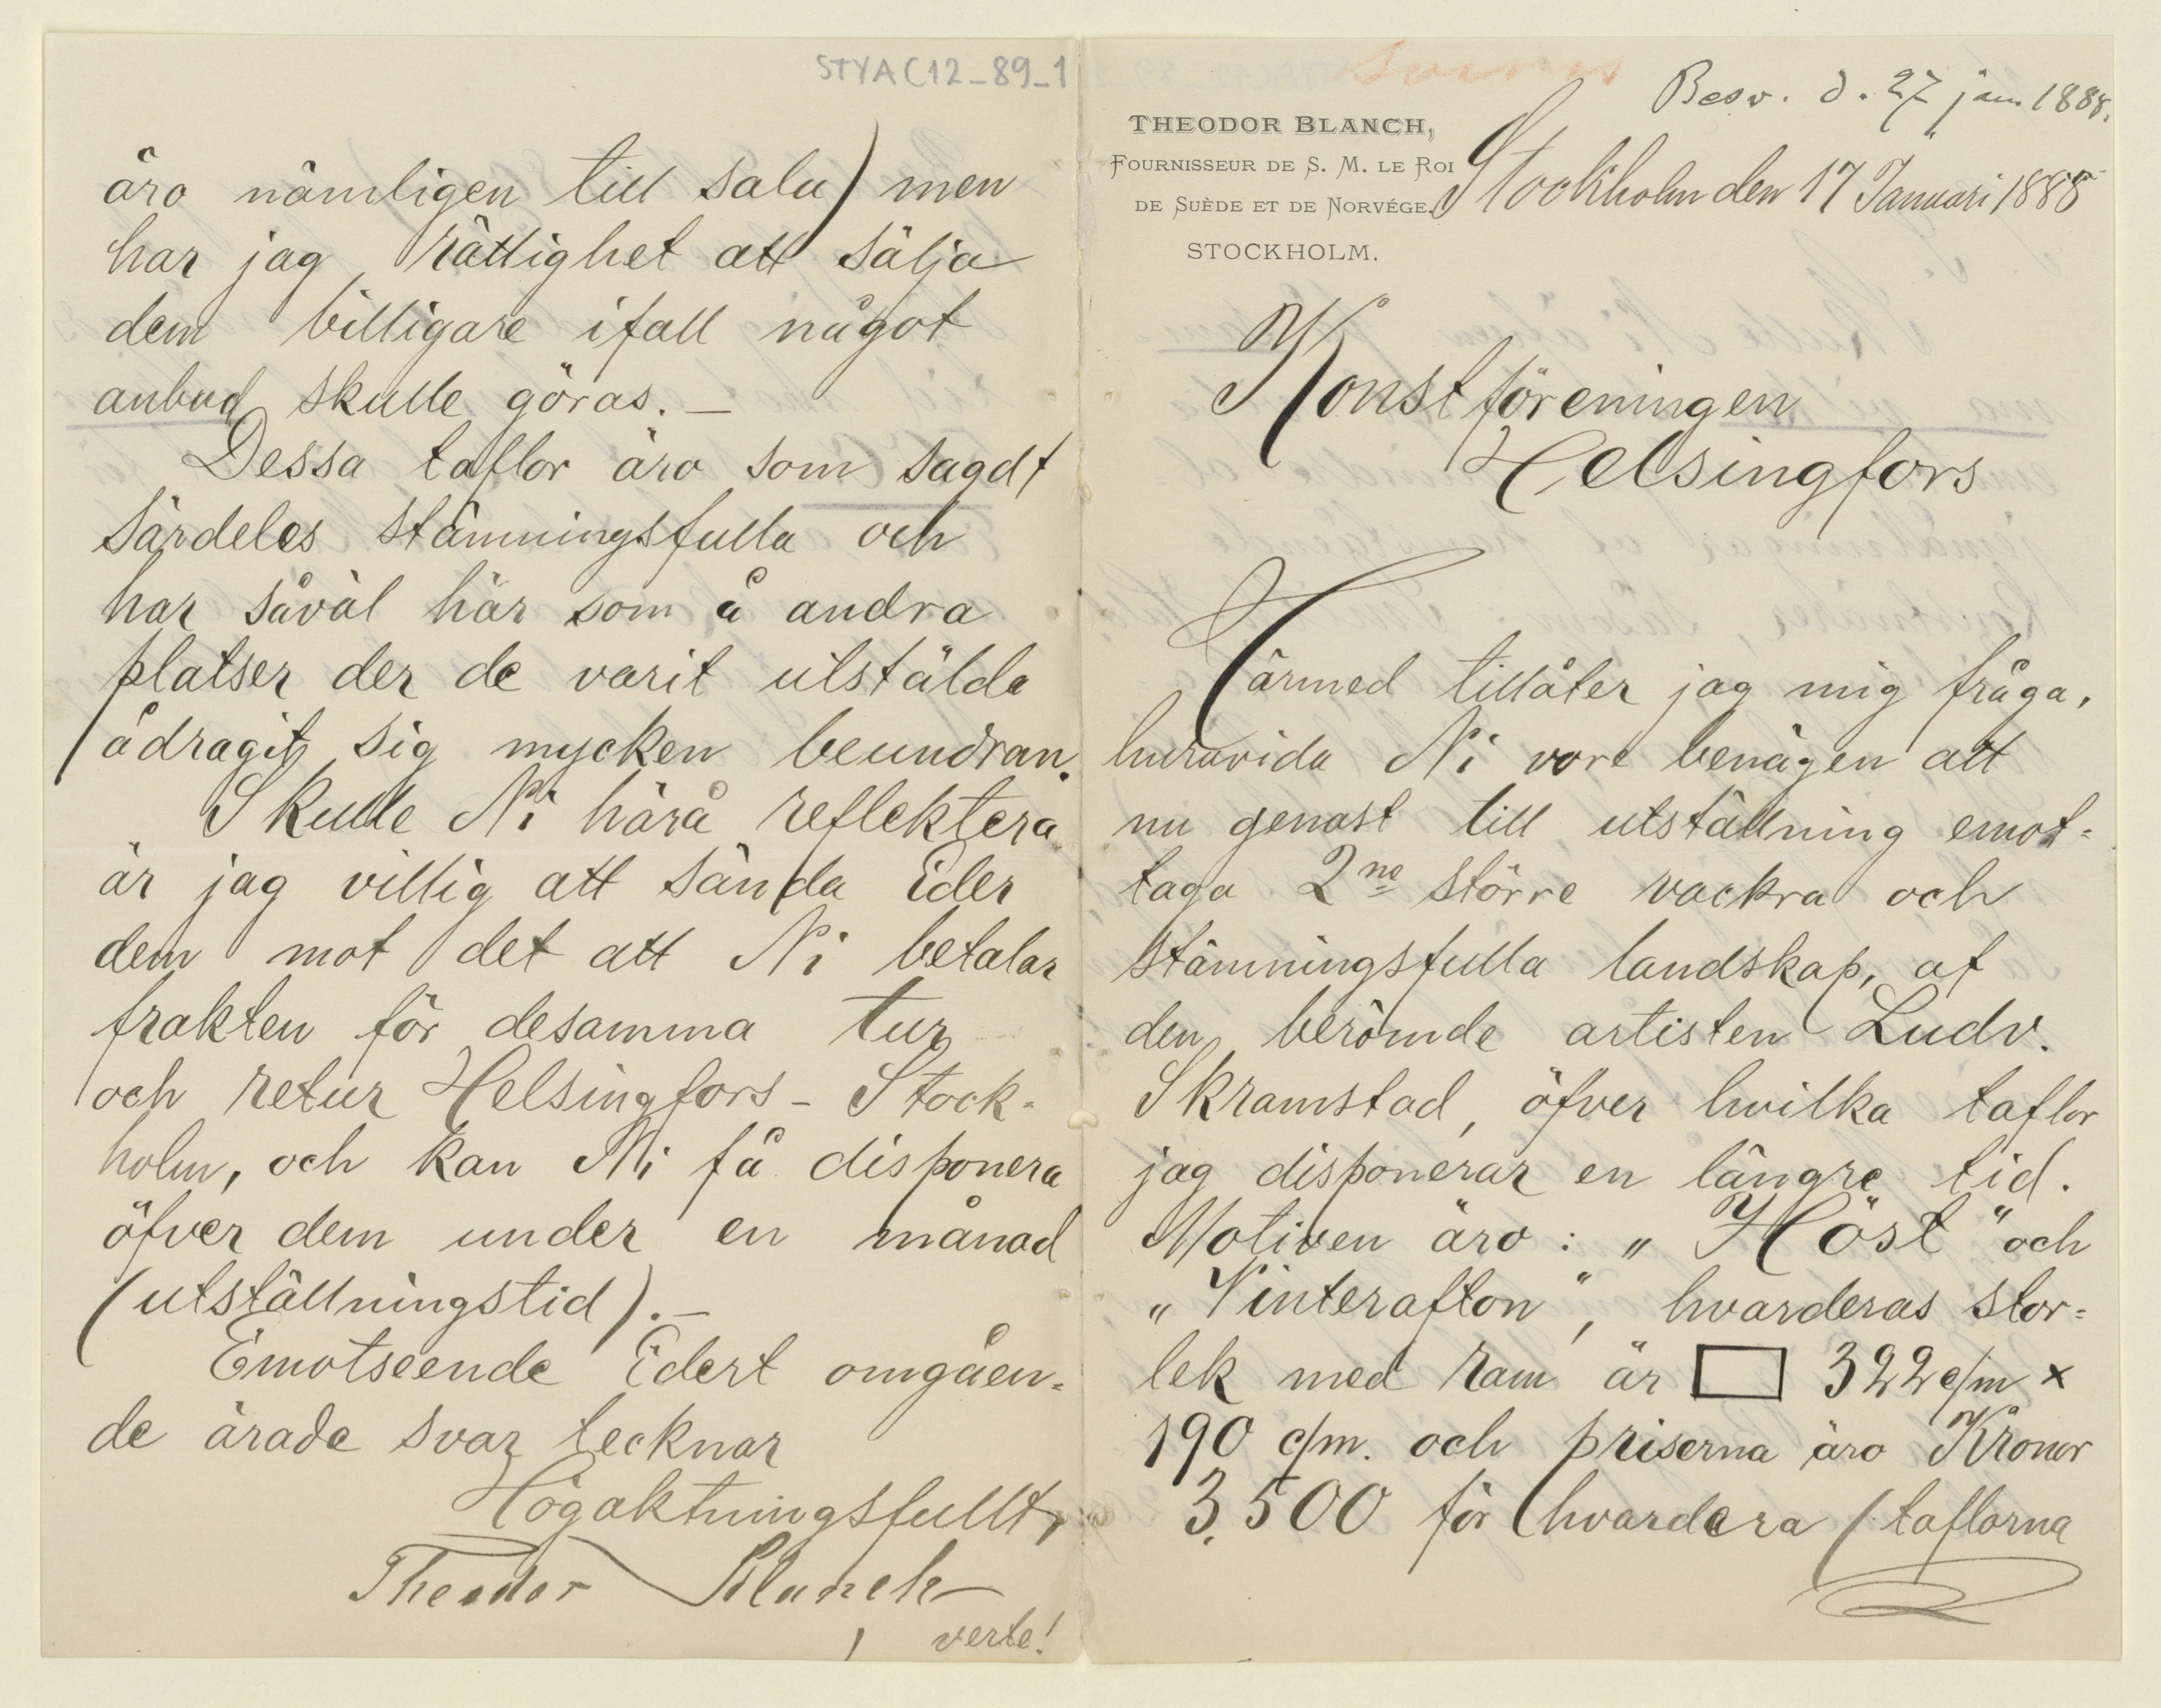 Besv. d. 27 jan. 1888.
THEODOR BLANCH,
FOURNISSEUR DE S. M. LE ROI
DE SUÈDE ET DE NORVÉGE.
STOCKHOLM.
Stockholm den 17 Januari 1888
Konstföreningen
Helsingfors
Härmed tillåter jag mig fråga,
huruvida Ni vore benägen att
nu genast till utställning emot=
taga 2ne större vackra och
stämningsfulla landskap, af
den berömde artisten Ludv.
Skramstad, öfver hvilka taflor
jag disponerar en längre tid.
Motiven äro: „Höst“ och
„Vinterafton“, hvarderas stor=
lek med ram är 322 c/m ×
190 c/m. och priserna äro Kronor
3,500 för hvardera (taflorna
STYAC12_89_1
äro nämligen till salu) men
har jag rättighet att sälja
dem billigare ifall något
anbud skulle göras. —
Dessa taflor äro som sagdt
särdeles stämningsfulla och
har såväl här som å andra
platser der de varit utstälda
ådragit sig mycken beundran.
Skulle Ni härå reflektera
är jag villig att sända Eder
dem mot det att Ni betalar
frakten för desamma tur
och retur Helsingfors – Stock=
holm, och kan Ni få disponera
öfver dem under en månad
(utställningstid). —
Emotseende Edert omgåen=
de ärade svar tecknar
Högaktningsfullt,
Theodor Blanch
verte!